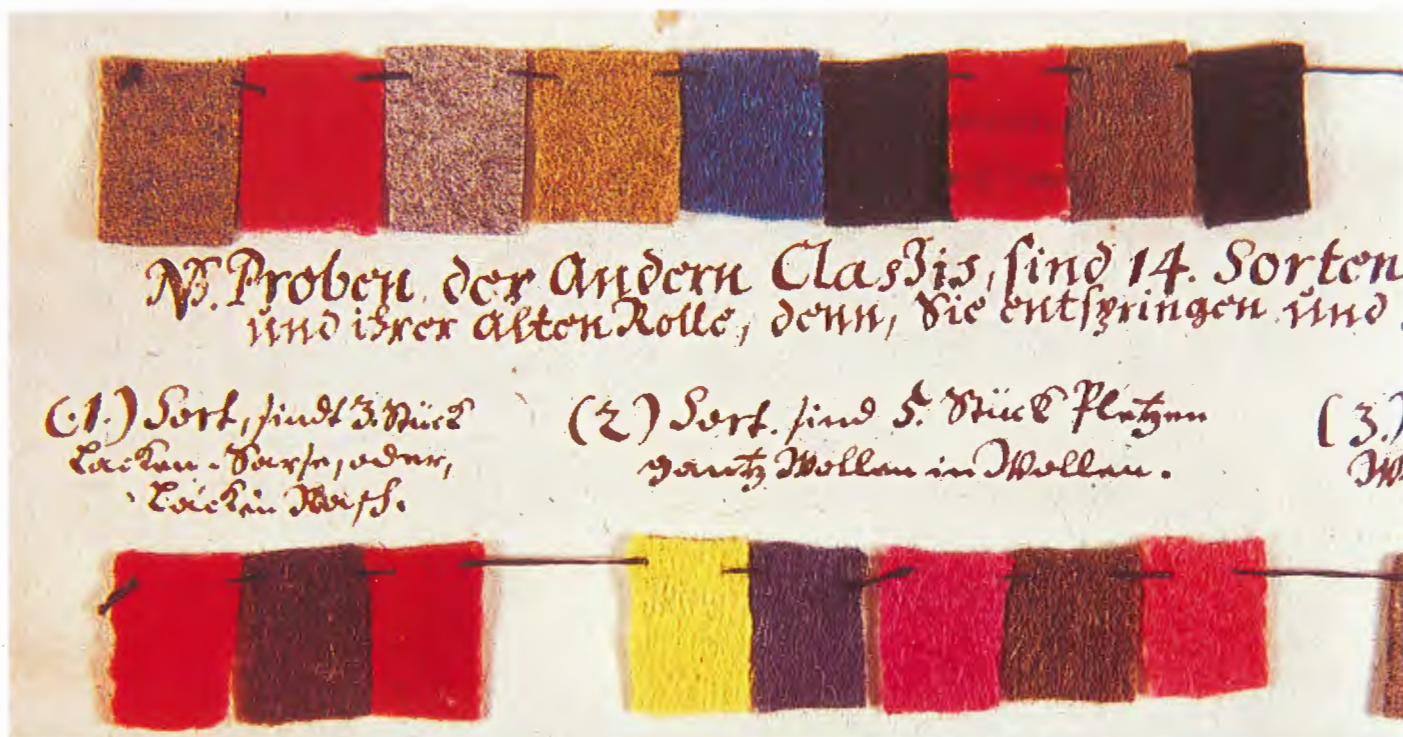 NB. Proben, der Andern Classis, sind 14. Sorten
und ihrer alten Rolle, denn, Sie entspringen und
(.1.) Sort, sindt 3. Stück
Lacken-Sarse, oder,
Lacken Rasch.
(2) Sort. sind 5. Stück Pletzen
gantz Wollen in Wollen.
(3.)